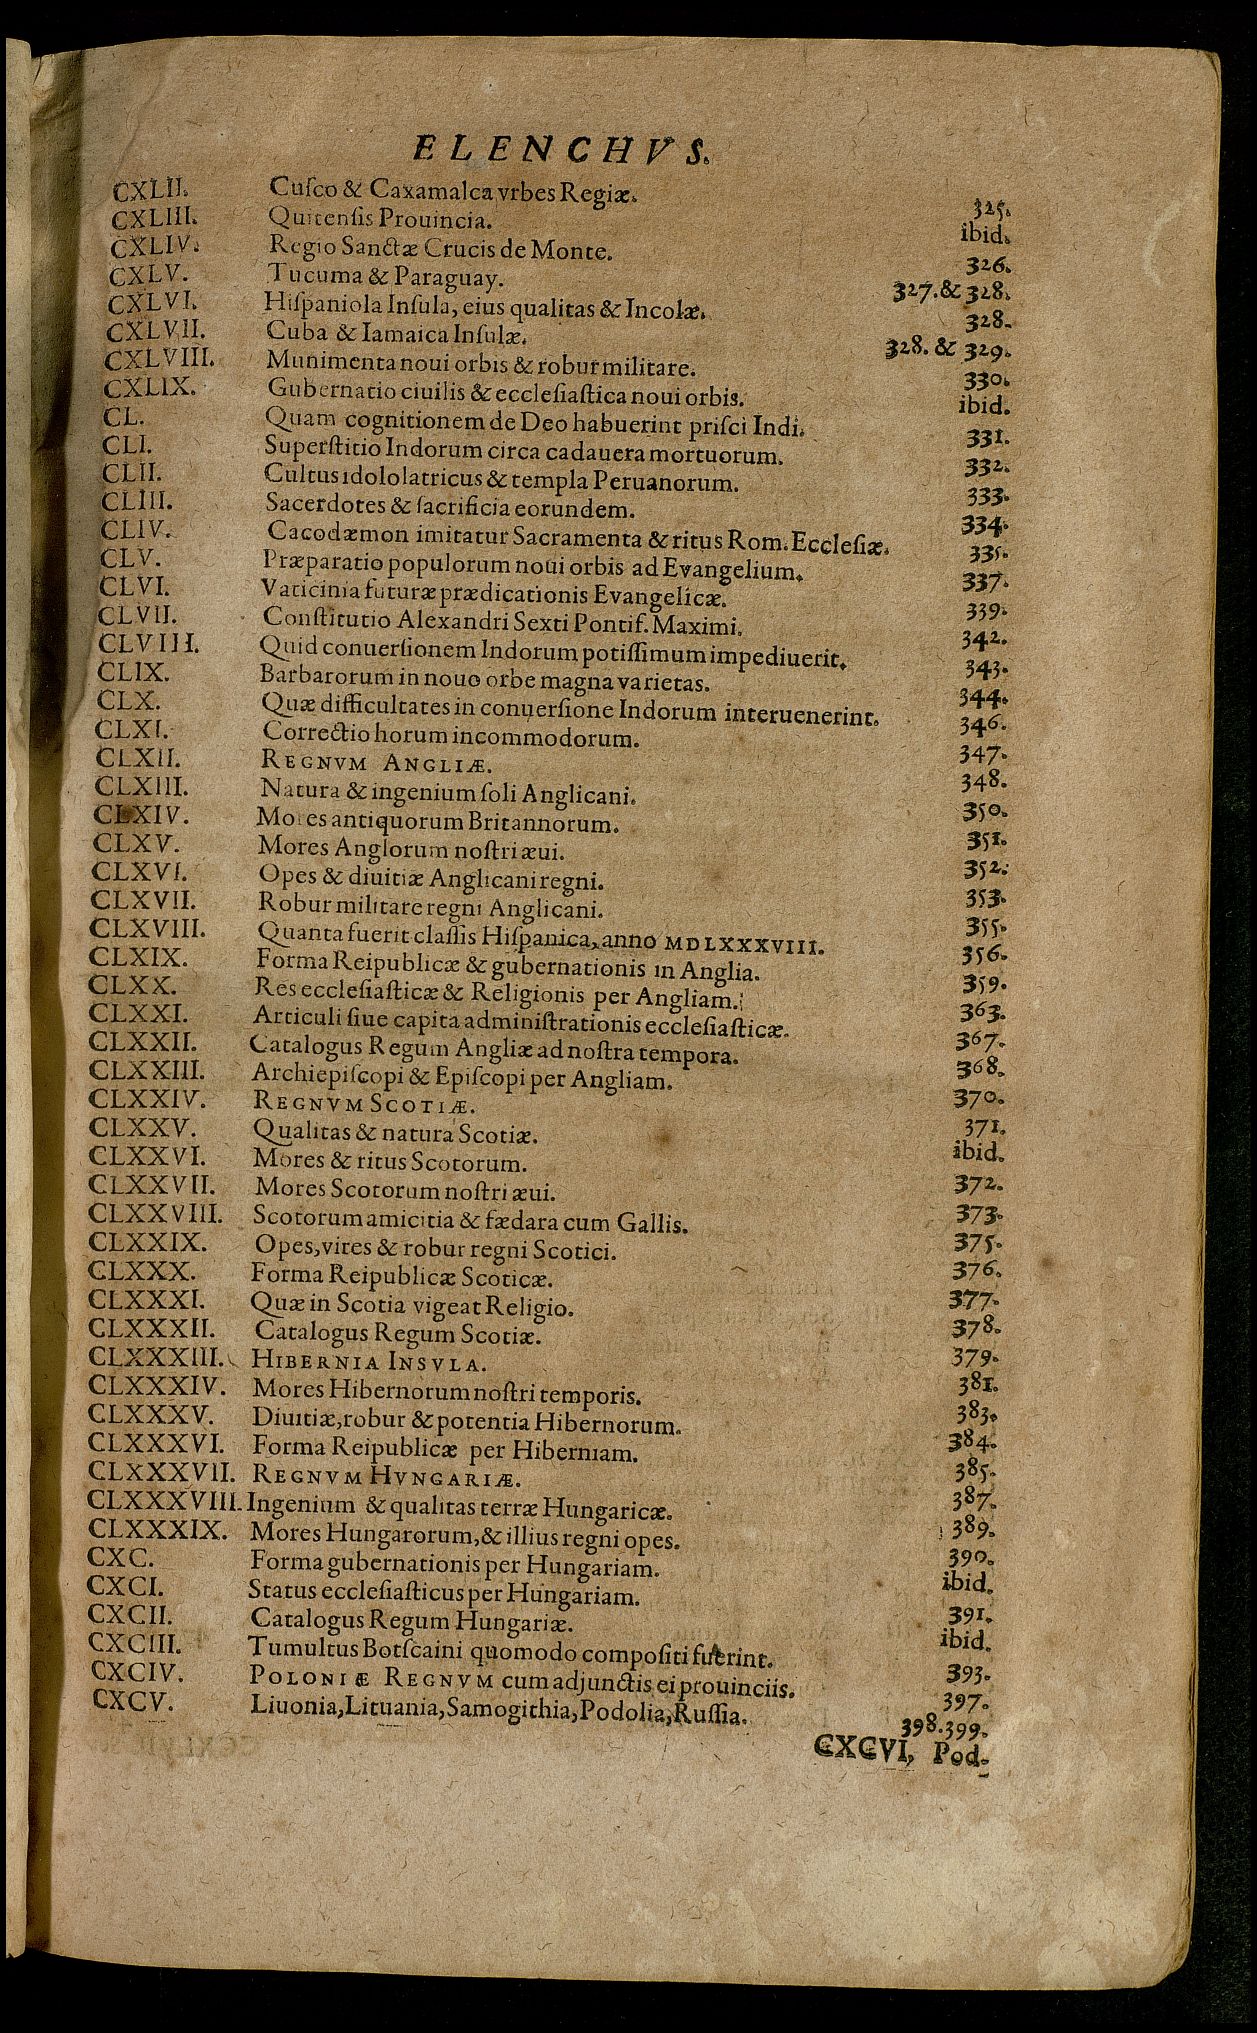 ELENCHVS.
CXLII. Cuſco & Caxamalca vrbes Regiæ. 325.
CXLIII. Quitenſis Prouincia. ibid.
CXLIV. Regio Sanctæ Crucis de Monte. 326.
CXLV. Tucuma & Paraguay. 327. & 328.
CXLVI. Hiſpaniola Inſula, eius qualitas & Incolæ. 328.
CXLVII. Cuba & Iamaica Inſulæ. 328. & 329.
CXLVIII. Munimenta noui orbis & robur militare. 330.
CXLIX. Gubernatio ciuilis & eccleſiaſtica noui orbis. ibid.
CL. Quam cognitionem de Deo habuerint priſci Indi. 331.
CLI. Superſtitio Indorum circa cadauera mortuorum. 332.
CLII. Cultus idololatricus & templa Peruanorum. 333.
CLIII. Sacerdotes & ſacrificia eorundem. 334.
CLIV. Cacodæmon imitatur Sacramenta & ritus Rom. Eccleſiæ. 335.
CLV. Præparatio populorum noui orbis ad Evangelium. 337.
CLVI. Vaticinia futuræ prædicationis Evangelicæ. 339.
CLVII. Conſtitutio Alexandri Sexti Pontif. Maximi. 342.
CLVIII. Quid conuerſionem Indorum potiſſimum impediuerit. 343.
CLIX. Barbarorum in nouo orbe magna varietas. 344.
CLX. Quæ difficultates in conuerſione Indorum interuenerint. 346.
CLXI. Correctio horum incommodorum. 347.
CLXII. REGNVM ANGLIÆ. 348.
CLXIII. Natura & ingenium ſoli Anglicani. 350.
CLXIV. Mores antiquorum Britannorum. 351.
CLXV. Mores Anglorum noſtri æui. 352.
CLXVI. Opes & diuitiæ Anglicani regni. 353.
CLXVII. Robur militare regni Anglicani. 355.
CLXVIII. Quanta fuerit claſſis Hiſpanica, anno MDLXXXVIII. 356.
CLXIX. Forma Reipublicæ & gubernationis in Anglia. 359.
CLXX. Res eccleſiaſticæ & Religionis per Angliam. 363.
CLXXI. Articuli ſiue capita adminiſtrationis eccleſiaſticæ. 367.
CLXXII. Catalogus Regum Angliæ ad noſtra tempora. 368.
CLXXIII. Archiepiſcopi & Epiſcopi per Angliam. 370.
CLXXIV. REGNVM SCOTIÆ. 371.
CLXXV. Qualitas & natura Scotiæ. ibid.
CLXXVI. Mores & ritus Scotorum. 372.
CLXXVII. Mores Scotorum noſtri æui. 373.
CLXXVIII. Scotorum amicitia & fædara cum Gallis. 375.
CLXXIX. Opes, vires & robur regni Scotici. 376.
CLXXX. Forma Reipublicæ Scoticæ. 377.
CLXXXI. Quæ in Scotia vigeat Religio. 378.
CLXXXII. Catalogus Regum Scotiæ. 379.
CLXXXIII. HIBERNIA INSVLA. 381.
CLXXXIV. Mores Hibernorum noſtri temporis. 383.
CLXXXV. Diuitiæ, robur & potentia Hibernorum. 384.
CLXXXVI. Forma Reipublicæ per Hiberniam. 385.
CLXXXVII. REGNVM HVNGARIÆ. 387.
CLXXXVIII. Ingenium & qualitas terræ Hungaricæ. 389.
CLXXXIX. Mores Hungarorum, & illius regni opes. 390.
CXC. Forma gubernationis per Hungariam. ibid.
CXCI. Status eccleſiaſticus per Hungariam. 391.
CXCII. Catalogus Regum Hungariæ. ibid.
CXCIII. Tumultus Botſcaini quomodo compoſiti fuerint. 393.
CXCIV. POLONIÆ REGNVM cum adjunctis ei prouinciis. 397.
CXCV. Liuonia, Lituania, Samogithia, Podolia, Ruſſia. 398. 399.
CXCVI. Pod-